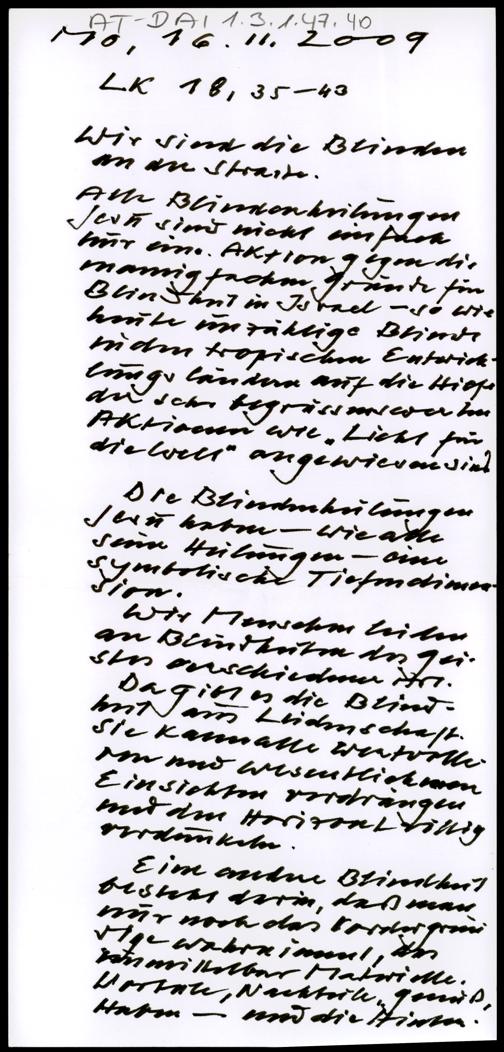 AT-DAI 1.3.1.47.40
Mo, 16.11.2009
LK 18,35-43
Wir sind die Blinden
an der Straße.
Alle Blindenheilungen
Jesu sind nicht einfach
nur eine Aktion gegen die
mannigfachen Gründe für
Blindheit in Israel – so wie
heute unzählige Blinde
in den tropischen Entwick-
lungsländern auf die Hilfe
der sehr begrüssenswerten
Aktionen wie „Licht für
die Welt" angewiesen sind
Die Blindenheilungen
Jesu haben – wie alle
seine Heilungen – eine
symbolische Tiefendimen-
sion.
Wir Menschen leiden
an Blindheiten des Gei-
stes verschiedener Art.
Da gibt es die Blind-
heit aus Leidenschaft.
Sie kann alle wertvolle
ren und wesentlicheren
Einsichten verdrängen
und den Horizont völlig
verdunkeln.
Eine andere Blindheit
besteht darin, daß man
nur noch das Vordergrün
dige wahrnimmt, das
unmittelbar Materielle.
Vorteile, Nachteile, Genuß,
Haben – und die